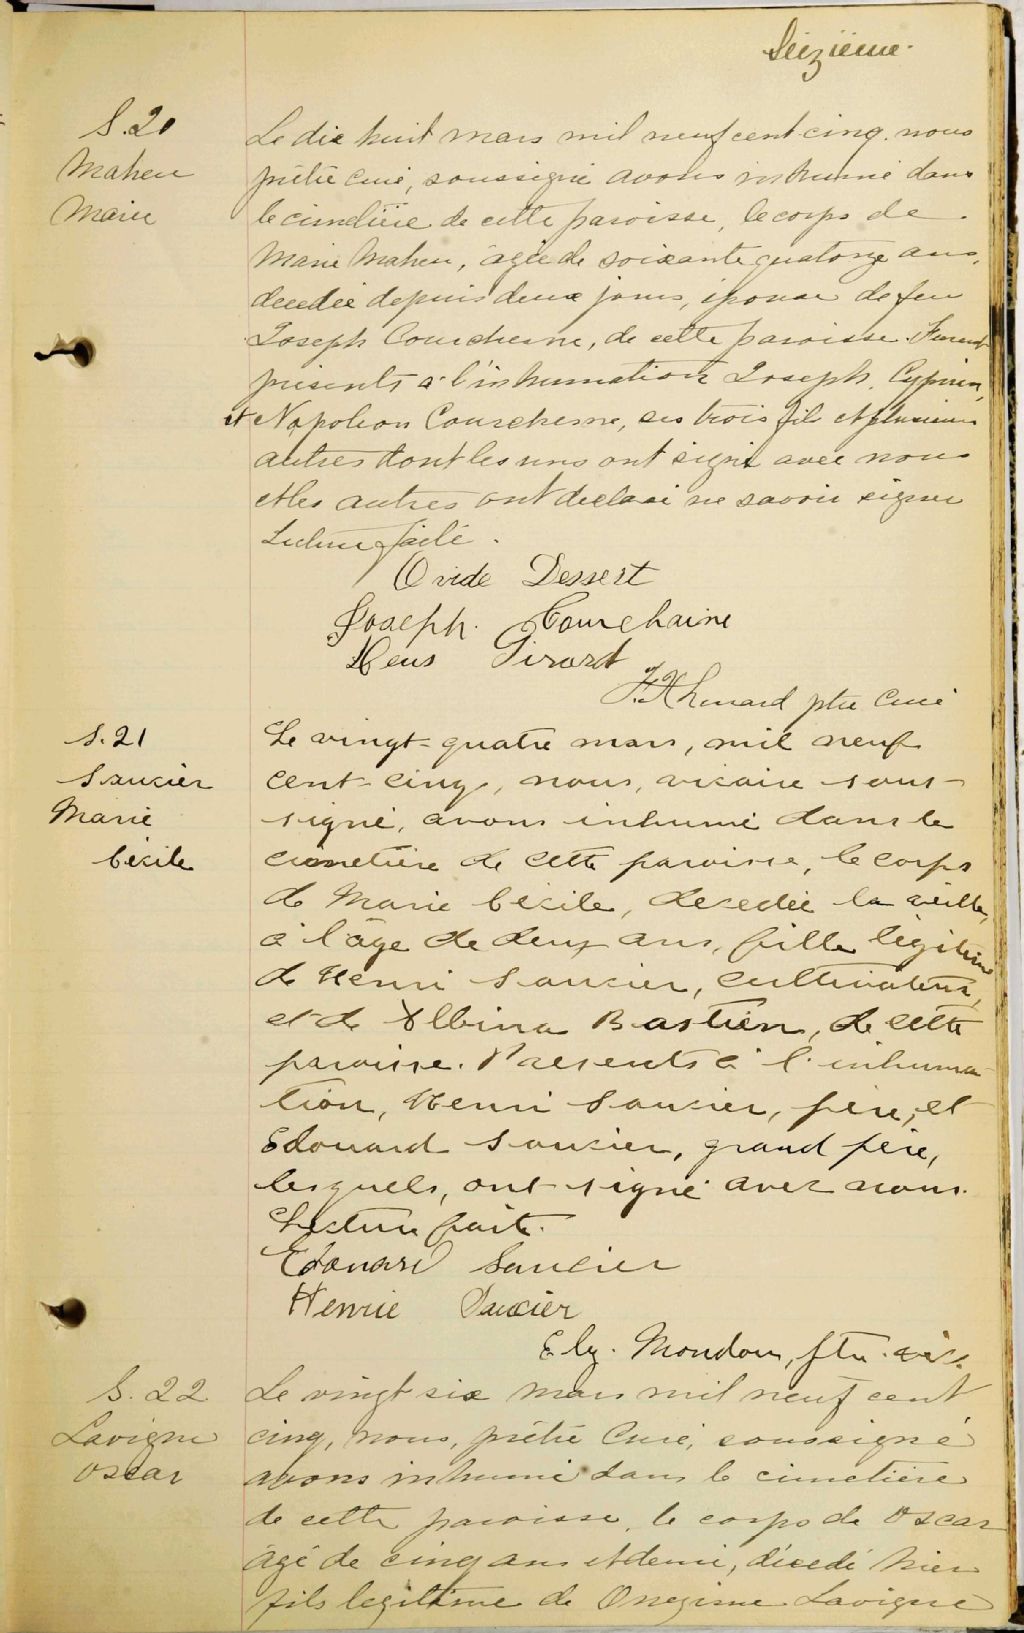 Seizième.
S. 21
Maheu
Marie
Le dix huit mars mil neuf cent cinq. nous
prêtre curé, soussigné avons inhumé dans
le cimetière de cette paroisse, le corps de
Marie Maheu, âgée de soixante quatorze ans,
decedée depuis deux jours, épouse de feu
Joseph Courchesne, de cette paroisse. Furent
présents à l'inhumation Joseph, Cyprien,
et Napoléon Courchesne, ses trois fils et plusieurs
autres dont les uns ont signé avec nous
et les autres ont declaré ne savoir signer
Lecture faite.
Ovide Dessert
Joseph. Courchaine
Girard
ptre Curé
S. 21
Saucier
Marie
Cécile
Le vingt-quatre mars, mil neuf
cent-cinq, nous, vicaire sous-
signé, avons inhumé dans le
cimetière de cette paroisse, le corps
de Marie Cécile, decedée la veille,
à l'âge de deux ans, fille légitime
de Henri Saucier, cultivateur,
et de Albina Bastien, de cette
paroisse. Présents à l'inhuma-
tion, Henri Saucier, père, et
Edouard Saucier, grand père,
lesquels, ont signé avec nous.
Lecture faite.
Edouard Saucier
Henrie Saucier
Ely. Mondou, ptre. vic.
S. 22
Lavigne
Oscar
Le vingt six mars mil neuf cent
cinq, nous, prêtre Curé, soussigné
avons inhumé dans le cimetière
de cette paroisse, le corps de Oscar
âgé de cinq ans et demi, décédé hier
fils legitime de Onezime Lavigne